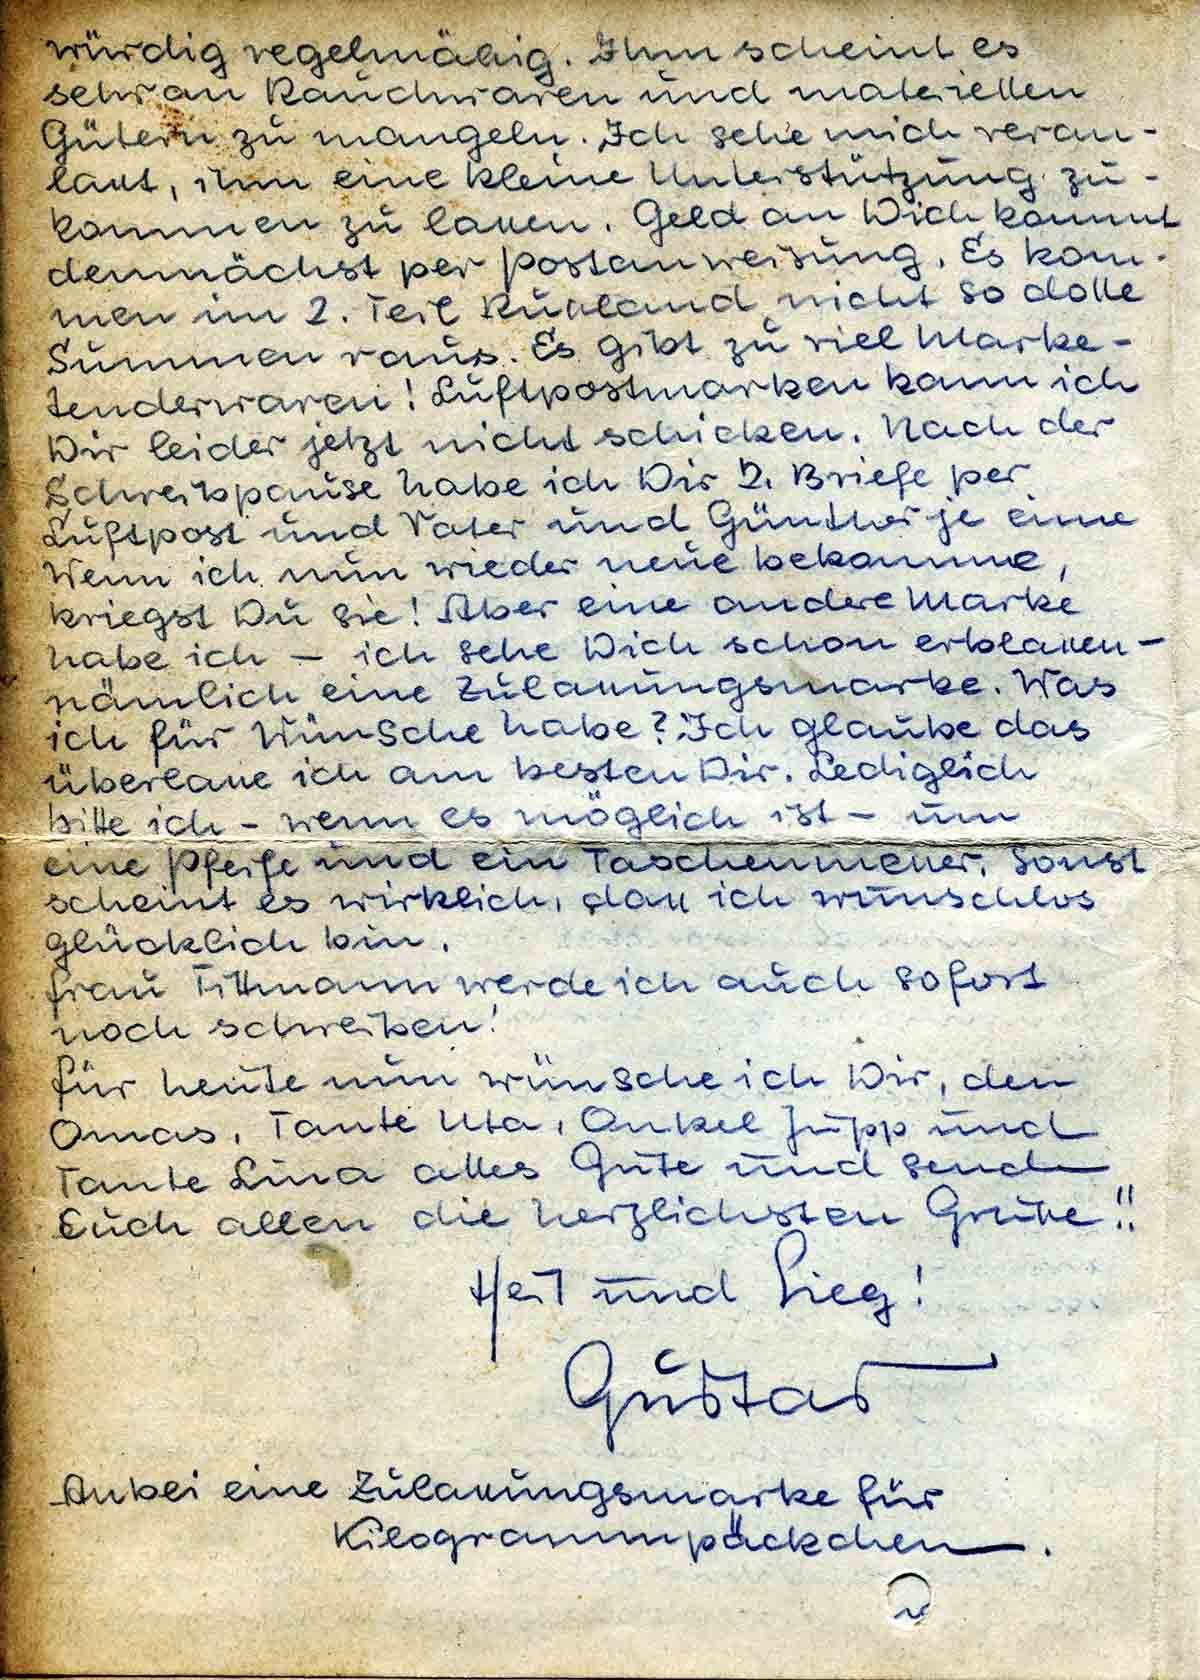 würdig regelmäßig. Ihm scheint es
sehr an Rauchwaren und materiellen
Gütern zu mangeln. Ich sehe mich veran-
laßt, ihm eine kleine Unterstützung zu-
kommen zu lassen. Geld an Dich kommt
demnächst per Postanweisung. Es kom-
men im 2. Teil Rußland nicht so dolle
Summen raus. Es gibt zu viel Marke-
tenderwaren! Luftpostmarken kann ich
Dir leider jetzt nicht schicken. Nach der
Schreibpause habe ich Dir 2. Briefe per
Luftpost und Vater und Günther je eine
Wenn ich nun wieder neue bekomme,
kriegst Du sie! Aber eine andere Marke
habe ich – ich sehe Dich schon erblassen –
nämlich eine Zulassungsmarke. Was
ich für Wünsche habe? Ich glaube das
überlasse ich am besten Dir. Lediglich
bitte ich – wenn es möglich ist – um
eine Pfeife und ein Taschenmesser. Sonst
scheint es wirklich, dass ich wunschlos
glücklich bin.
Frau Tittmann werde ich auch sofort
noch schreiben!
Für heute nun wünsche ich Dir, den
Omas, Tante Uta, Onkel Jupp und
Tante Lina alles Gute und sende
Euch allen die herzlichsten Grüße!!
Heil und Sieg!
Gustav
Anbei eine Zulassungsmarke für
Kilogrammpäckchen.